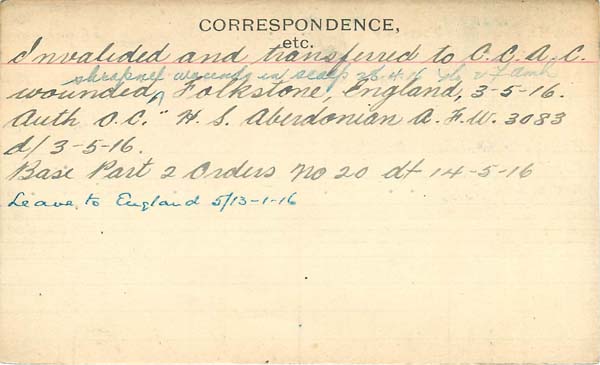 CORRESPONDENCE,
etc.
Invalided and transferred to C.C.A.C.
shrapnel wounds in scalp 26.4.16
wounded, Folkstone, England, 3-5-16.
Auth O.C. "H.S. Aberdonian A.F.W. 3083
d/3-5-16.
Base Part 2 Orders No 20 dt 14-5-16
Leave to England 5/13-1-16